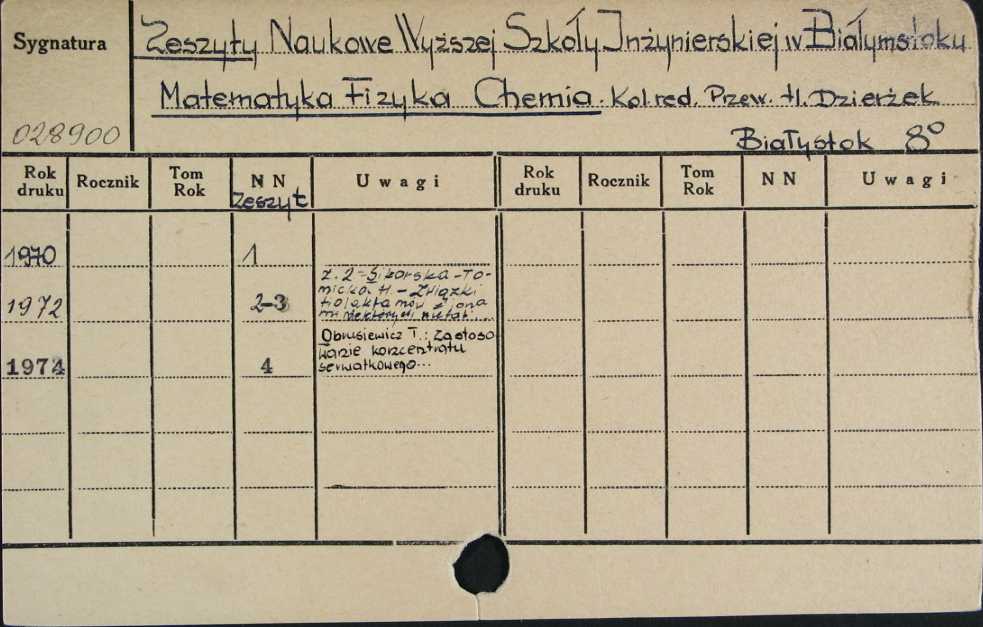 Sygnatura
Zeszyty Naukowe Wyższej Szkoły Inżynierskiej w Białymstoku
Matematyka Fizyka Chemia. Kol. red. Przew. H. Dzierżek
028900
Białystok 8º
Rok druku Rocznik Tom Rok NN Zeszyt Uwagi Rok druku Rocznik Tom Rok NN Uwagi
1970 1
z. 2 = Sikorska-To-
micka H. - Związki
1972 2-3 tiolaktamów z jona
mi niektórych metali...
Obrusiewicz T.: Zastoso
wanie koncentratu
1974 4 serwatkowego...